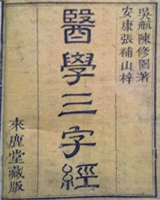 吳航陳修園著
安康張補山梓
醫學三字經
來鹿堂藏版